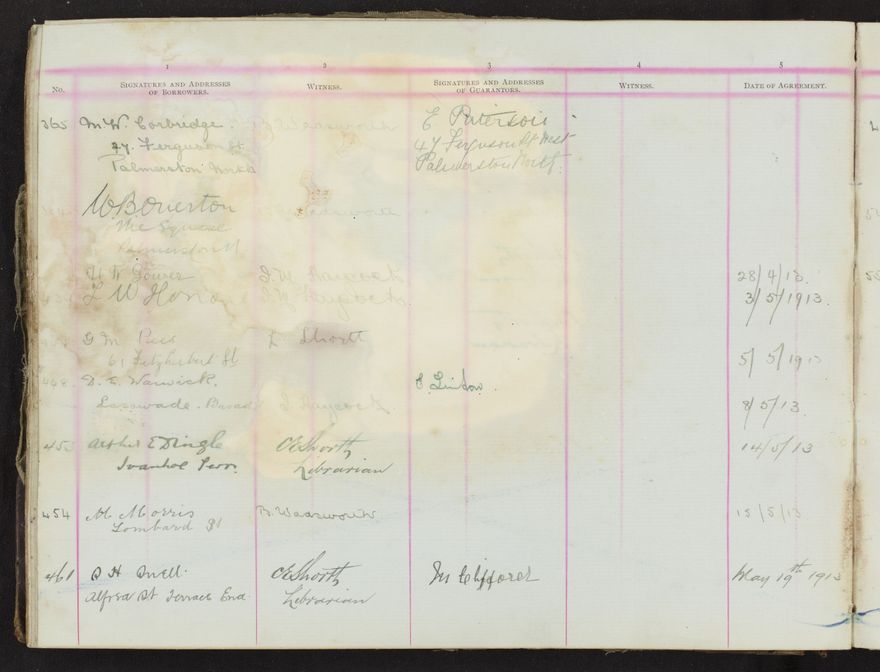 1 2 3 4 5
No. SIGNATURES AND ADDRESSES OF BORROWERS. WITNESS. SIGNATURES AND ADDRESSES OF GUARANTORS. WITNESS. DATE OF AGREEMENT.
365 M. W. Corbridge. Wadsworth E Paterson
27. Ferguson St 47 Ferguson St West
Palmerston North Palmerston North.
W B Overton Wadsworth
The Square
Palmerston N
Gower J. W. Haycock 28/4/13.
L W J. W. Haycock 3/5/1913.
G M L Shortt
61 Fitzherbert St 5/5/1913
D. E. Warwick. E. Linton.
Lasswade. Broad J Haycock 8/5/13.
453 Arthur E Dingle C E Shortt 14/5/13
Ivanhoe Terr. Librarian
454 M Morris B. Wadsworth 15/5/13
Lombard St
461 S H Snell C E Shortt M Clifford May 19th 1913
Alfred St Terrace End Librarian